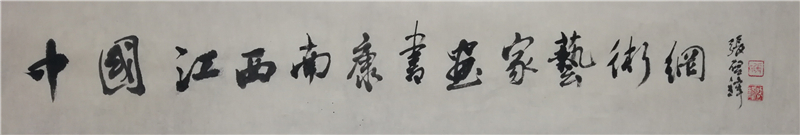 中國江西南康書畫家藝術網
張啓